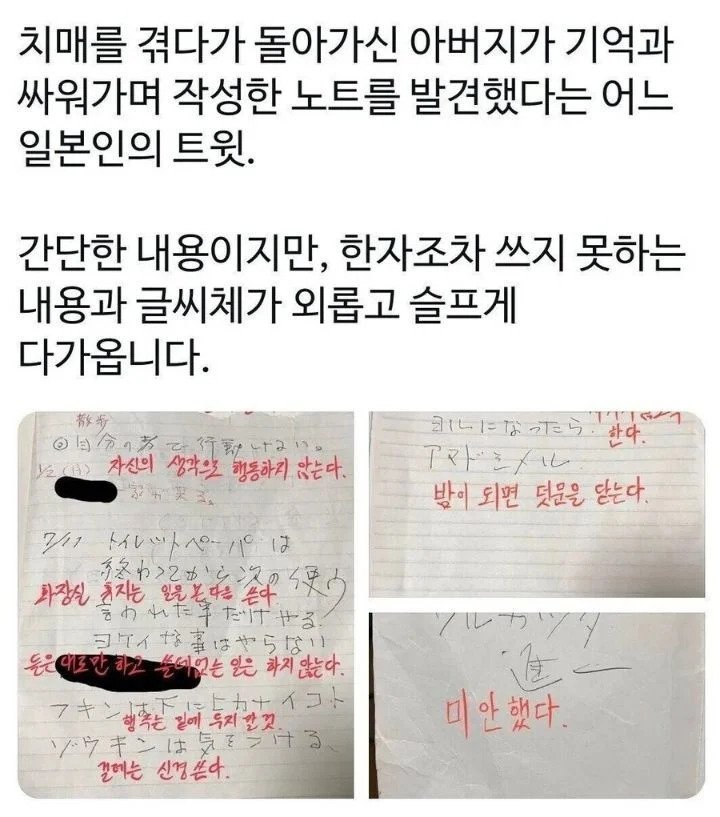 치매를 겪다가 돌아가신 아버지가 기억과
싸워가며 작성한 노트를 발견했다는 어느
일본인의 트윗.
간단한 내용이지만, 한자조차 쓰지 못하는
내용과 글씨체가 외롭고 슬프게
다가옵니다.
散歩
◎自分の考で行動しない。
1/2(月) 자신의 생각으로 행동하지 않는다.
7/17 トイレットペーパは
終わってから次の使ウ
화장실 휴지는 일을 본 다음 쓴다
言われた事だけやる
ヨケイな事はやらない
들은 대로만 하고 쓸데없는 일은 하지 않는다.
フキンは下にヒカナイコト
행주는 밑에 두지 말 것.
ゾウキンは気をつける、
걸레는 신경 쓴다.
ヨルになったら
한다.
アマドシメル
밤이 되면 덧문을 닫는다.
ワルカッタ
進一
미안했다.